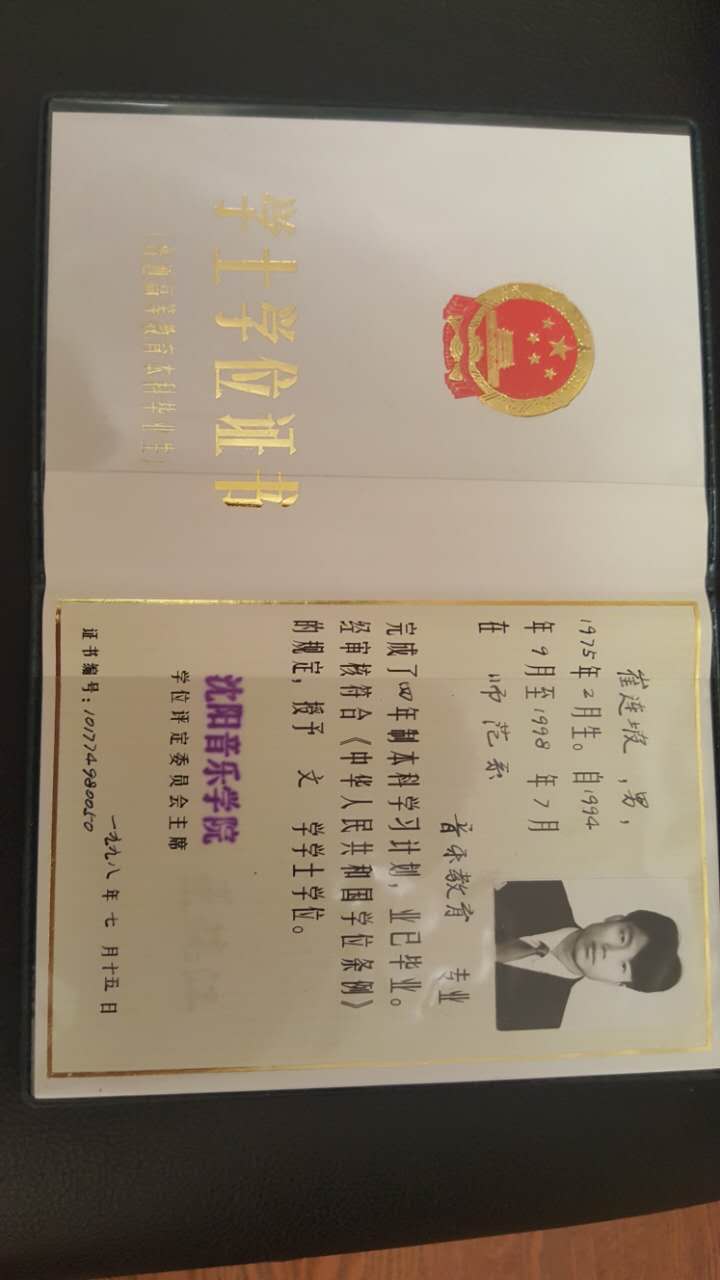 学士学位证书
(普通高等教育本科毕业生)
崔连坡，男，
1975年2月生。自1994
年9月至1998年7月
在 师范系
音乐教育 专业
完成了四年制本科学习计划，业已毕业。
经审核符合《中华人民共和国学位条例》
的规定，授予 文 学学士学位。
沈阳音乐学院
学位评定委员会主席
一九九八年七月十五日
证书编号：101774980050